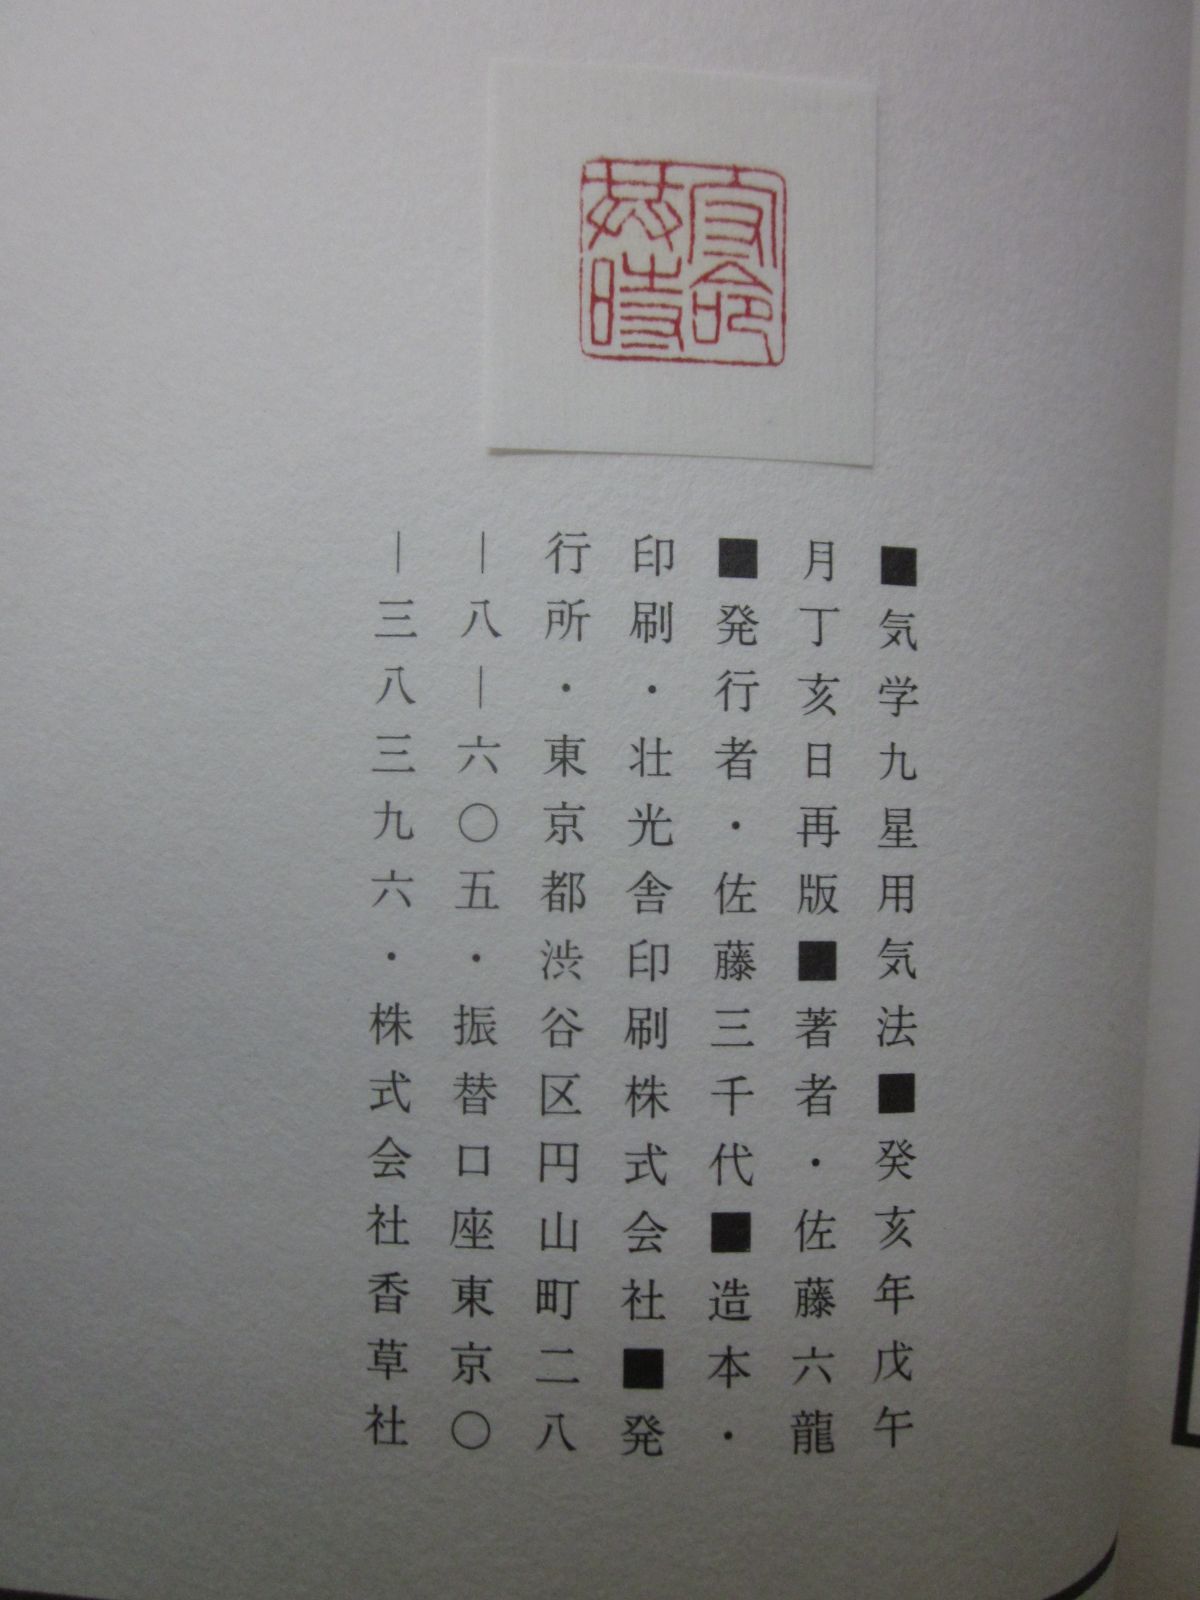 ■気学九星用気法■癸亥年戊午
月丁亥日再版■著者・佐藤六龍
■発行者・佐藤三千代■造本・
印刷・壮光舎印刷株式会社■発
行所・東京都渋谷区円山町二八
―八―六〇五・振替口座東京〇
―三八三九六・株式会社香草社